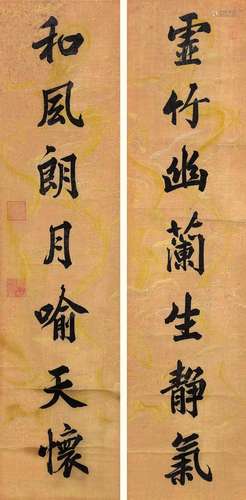 靈竹幽蘭生靜氣
和風朗月喻天懷